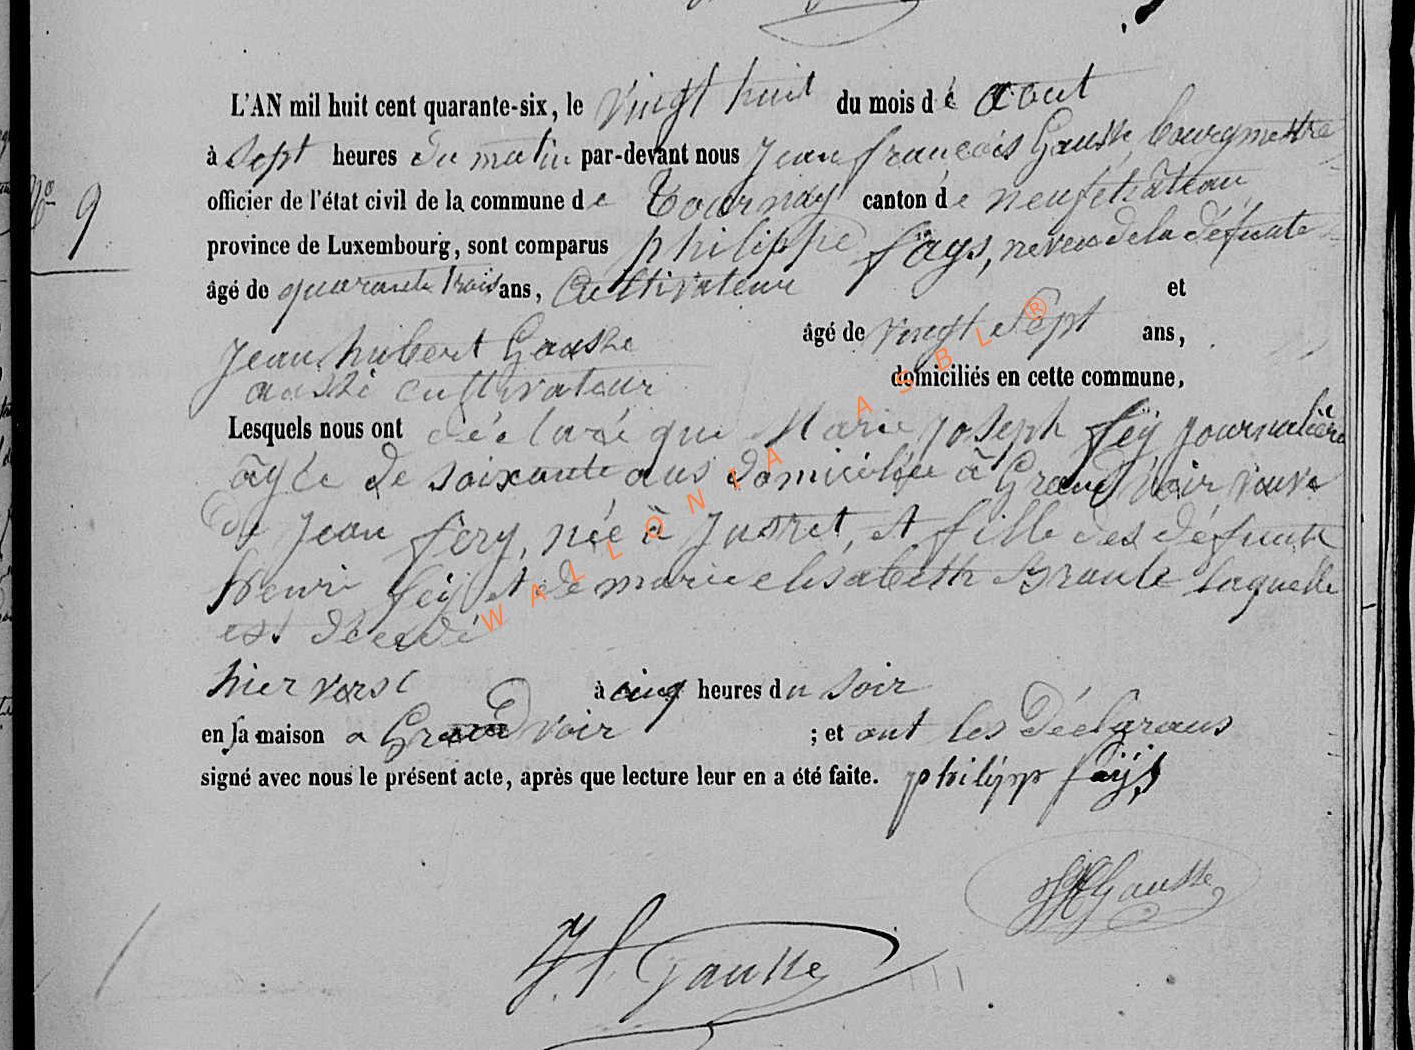 L'AN mil huit cent quarante-six, le vingt huit du mois dé aout
à sept heures du matin par-devant nous Jean françois Gausse bourgmestre
officier de l'état civil de la commune de Tournay canton de neufchâteau
N° 9
province de Luxembourg, sont comparus philippe fays, neveu de la défunte
âgé de quarante trois ans, Cultivateur et
Jean hubert Gausse âgé de vingt sept ans,
aussi cultivateur domiciliés en cette commune,
Lesquels nous ont déclaré que Marie joseph féy journalière
âgée de soixante ans domiciliée à Grand Voir veuve
de Jean féry, née à Jusret, et fille des défunts
henri féÿ et de marie elisabeth laquelle
est décédé
hier vers à cinq heures du soir
en sa maison a Grand voir ; et ont les Déclarans
signé avec nous le présent acte, après que lecture leur en a été faite. philipp faÿs
JH Gausse
J. f Gausse
WALLONIA ASBL ®